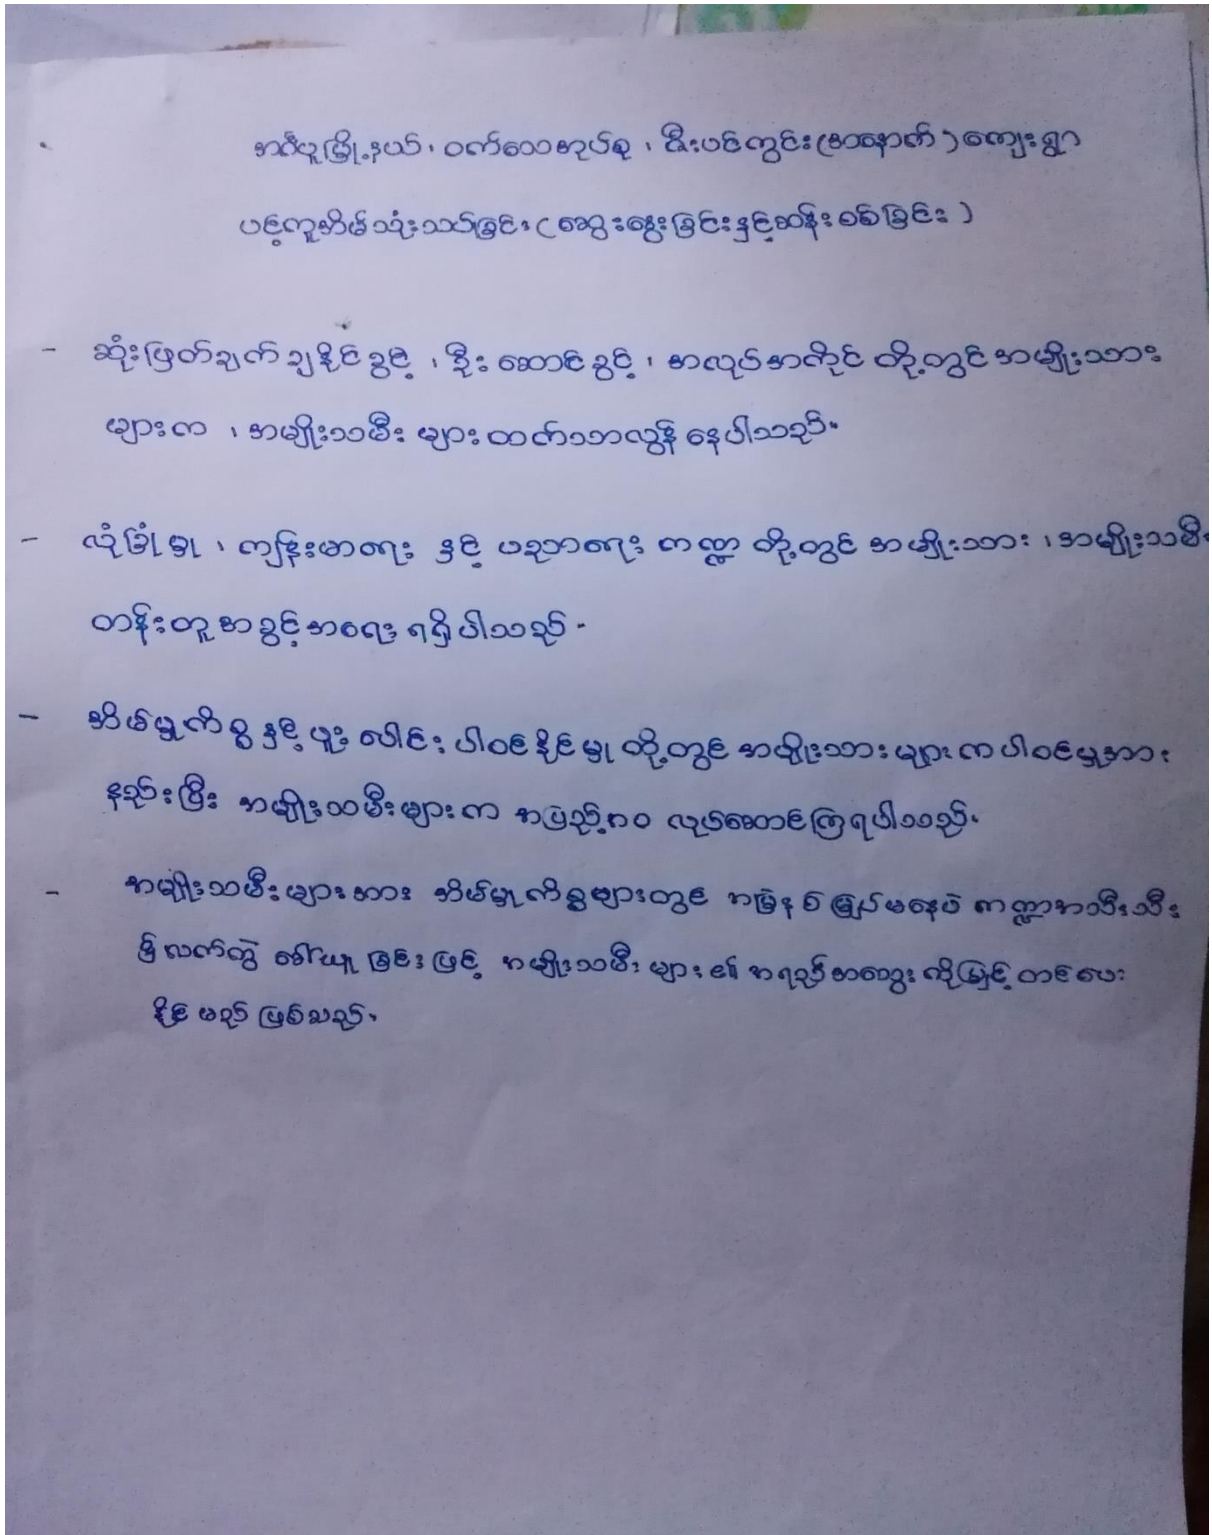 အင်္ဂပူမြို့နယ်၊ ဝက်သေအုပ်စု ၊ ဇီးပင်ကွင်း(အနောက်)ကျေးရွာ
ပင့်ကူအိမ်သုံးသပ်ခြင်း (ဆွေးနွေးခြင်းနှင့်ဆန်းစစ်ခြင်း)
- ဆုံးဖြတ်ချက်ချနိုင်ခွင့် ၊ ဦးဆောင်ခွင့် ၊ အလုပ်အကိုင် တို့တွင် အမျိုးသား
များက ၊ အမျိုးသမီး များထက်သာလွန် နေပါသည်။
- လုံခြုံမှု ၊ ကျန်းမာရေး နှင့် ပညာရေး ကဏ္ဍ တို့တွင် အမျိုးသား ၊ အမျိုးသမီး
တန်းတူအခွင့်အရေး ရရှိပါသည်။
- အိမ်မှုကိစ္စ နှင့် ပူးပေါင်း ပါဝင်နိုင်မှု တို့တွင် အမျိုးသားများက ပါဝင်မှုအား
နည်းပြီး အမျိုးသမီးများက အပြည့်အဝ လုပ်ဆောင်ကြရပါသည်။
- အမျိုးသမီးများအား အိမ်မှုကိစ္စများတွင် နစ်မြှုပ်မနေပဲ ကဏ္ဍအသီးသီး
၌ လက်တွဲ ခေါ်ယူခြင်းဖြင့် အမျိုးသမီးများ၏ အရည်အသွေး ကိုမြှင့်တင်ပေး
နိုင်မည် ဖြစ်သည်။